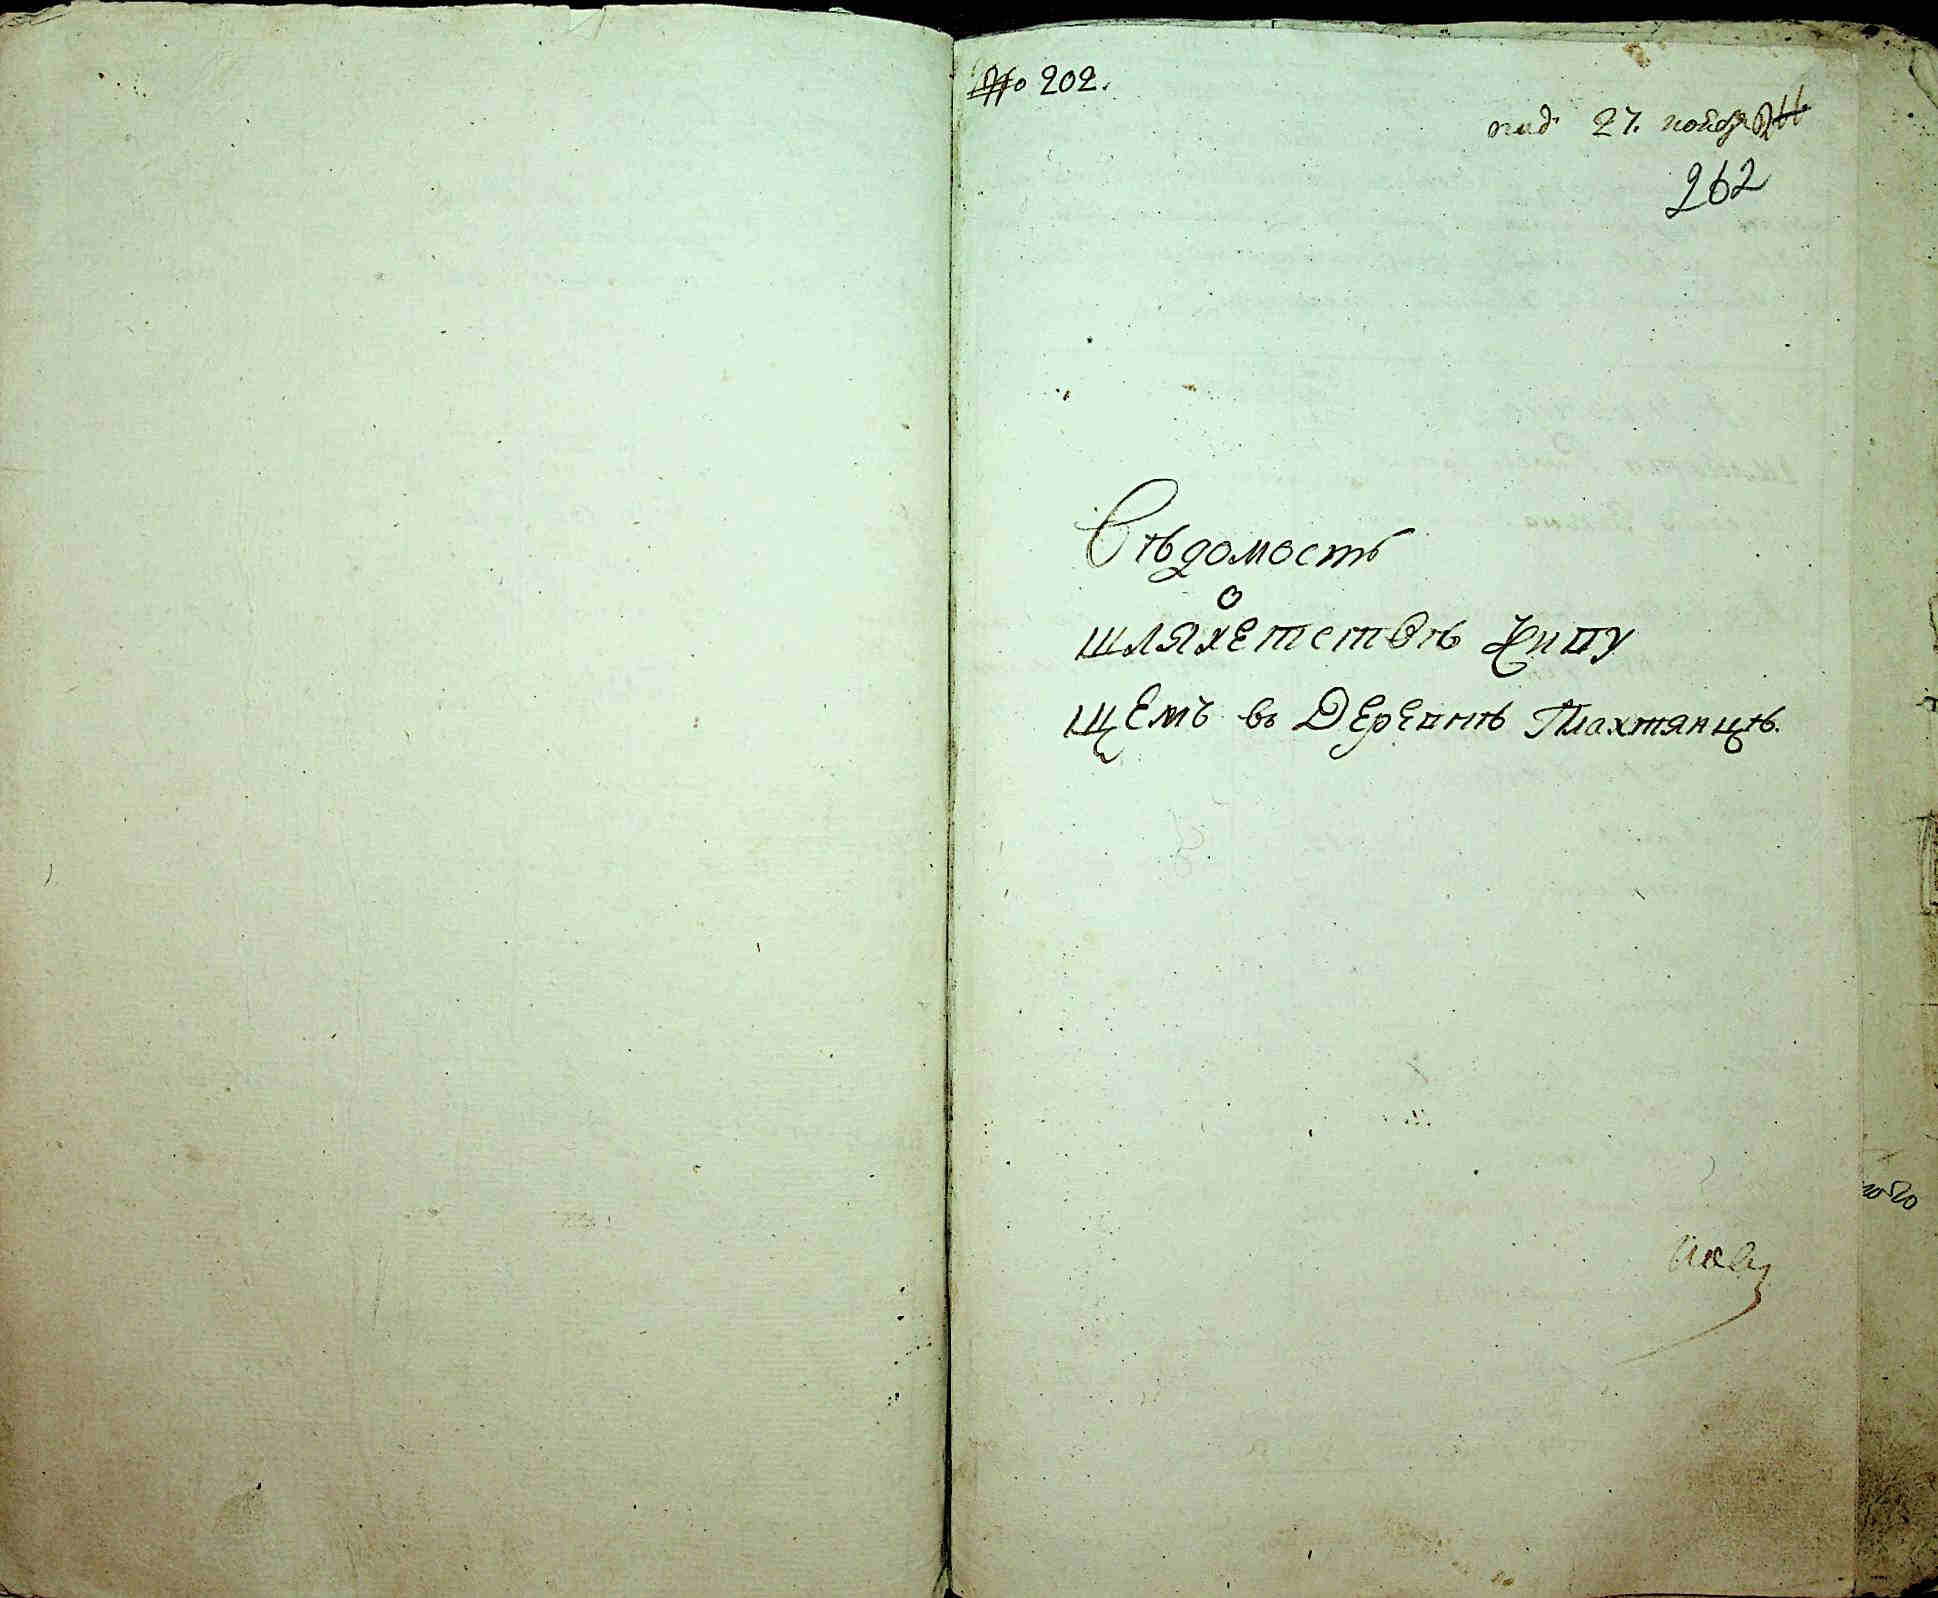 № 202.
под. 27. ноября
262
Вѣдомость
о
шляхетствѣ живу
щемъ въ Деревнѣ Плахтянцѣ.